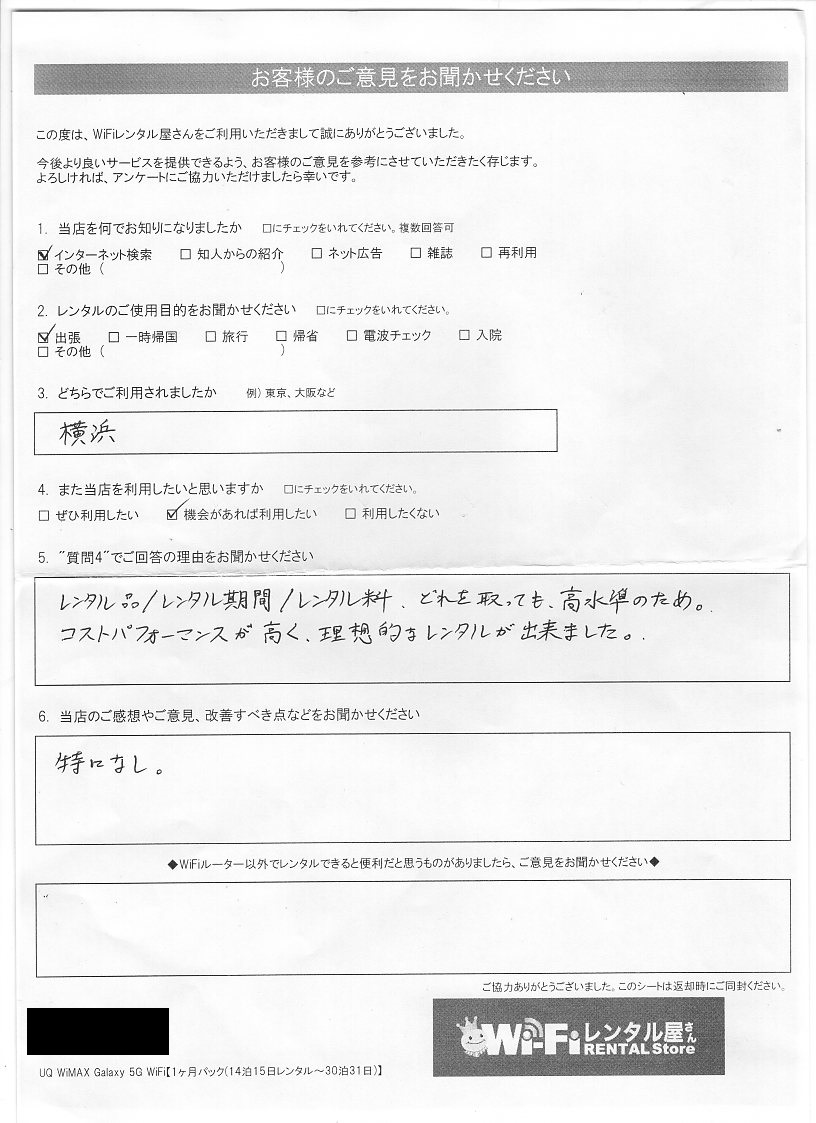 お客様のご意見をお聞かせください
この度は、WiFiレンタル屋さんをご利用いただきまして誠にありがとうございました。
今後より良いサービスを提供できるよう、お客様のご意見を参考にさせていただきたく存じます。
よろしければ、アンケートにご協力いただけましたら幸いです。
1. 当店を何でお知りになりましたか □にチェックをいれてください。複数回答可
☑ インターネット検索 □ 知人からの紹介 □ ネット広告 □ 雑誌 □ 再利用
□ その他 ( )
2. レンタルのご使用目的をお聞かせください □にチェックをいれてください。
☑ 出張 □ 一時帰国 □ 旅行 □ 帰省 □ 電波チェック □ 入院
□ その他 ( )
3. どちらでご利用されましたか 例) 東京、大阪など
横浜
4. また当店を利用したいと思いますか □にチェックをいれてください。
□ ぜひ利用したい ☑ 機会があれば利用したい □ 利用したくない
5. "質問4"でご回答の理由をお聞かせください
レンタル品/レンタル期間/レンタル料、どれを取っても、高水準のため。
コストパフォーマンスが高く、理想的なレンタルが出来ました。
6. 当店のご感想やご意見、改善すべき点などをお聞かせください
特になし。
◆WiFiルーター以外でレンタルできると便利だと思うものがありましたら、ご意見をお聞かせください◆
ご協力ありがとうございました。このシートは返却時にご同封ください。
Wi-Fiレンタル屋さん
RENTAL Store
UQ WiMAX Galaxy 5G WiFi【1ヶ月パック(14泊15日レンタル～30泊31日)】